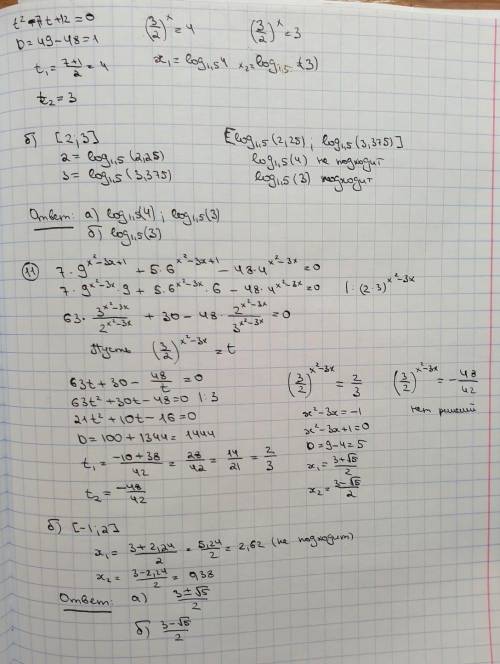 t² - 7t + 12 = 0
D = 49 - 48 = 1
t₁ = (7+1)/2 = 4
t₂ = 3
(3/2)^x = 4
x₁ = log₁,₅ 4
(3/2)^x = 3
x₂ = log₁,₅ (3)
б) [2;3]
2 = log₁,₅ (2,25)
3 = log₁,₅ (3,375)
[log₁,₅ (2,25); log₁,₅ (3,375)]
log₁,₅ (4) не подходит
log₁,₅ (3) подходит
Ответ: а) log₁,₅(4); log₁,₅(3)
б) log₁,₅(3)
11 7·9^(x²-3x+1) + 5·6^(x²-3x+1) - 48·4^(x²-3x) = 0
7·9^(x²-3x)·9 + 5·6^(x²-3x)·6 - 48·4^(x²-3x) = 0 |:(2·3)^(x²-3x)
63·3^(x²-3x)/2^(x²-3x) + 30 - 48·2^(x²-3x)/3^(x²-3x) = 0
Пусть (3/2)^(x²-3x) = t
63t + 30 - 48/t = 0
63t² + 30t - 48 = 0 |:3
21t² + 10t - 16 = 0
D = 100 + 1344 = 1444
t₁ = (-10+38)/42 = 28/42 = 14/21 = 2/3
t₂ = -48/42
(3/2)^(x²-3x) = 2/3
x² - 3x = -1
x² - 3x + 1 = 0
D = 9 - 4 = 5
x₁ = (3+√5)/2
x₂ = (3-√5)/2
(3/2)^(x²-3x) = -48/42
нет решений
б) [-1;2]
x₁ = (3+2,24)/2 = 5,24/2 = 2,62 (не подходит)
x₂ = (3-2,24)/2 = 0,38
Ответ: а) (3±√5)/2
б) (3-√5)/2